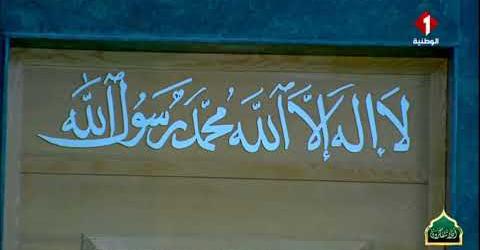 1
الوطنية
لا إله إلا ٱلله محمد رسول ٱلله